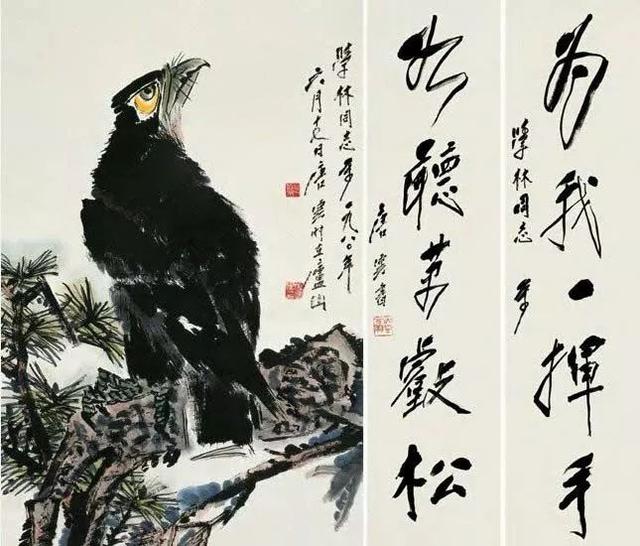 為我一揮手
林同志
如聽萬壑松
唐雲書
林同志 一九八〇年
六月十日唐雲時在廬山